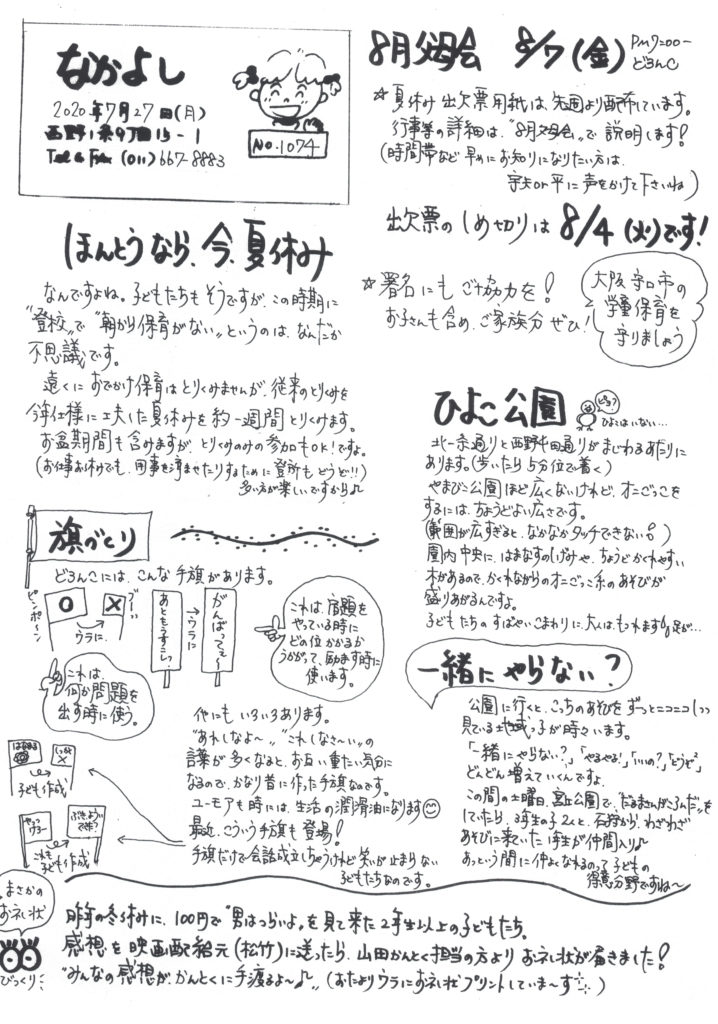 なかよし
2020年7月27日(月)
西野1条9丁目15-1
Tel & Fax (011) 667-8883
NO.1074
8月父母会 8/7(金) PM7:00〜
どろんこ
☆夏休み出欠票用紙は、先週より配布しています。
行事等の詳細は、"8月父母会"で説明します!
(時間帯など早めにお知りになりたい方は、
守矢or平に声をかけて下さいね)
出欠票のしめ切りは8/4(火)です!
☆署名にもご協力を!
お子さんも含め、ご家族分ぜひ!
大阪守口市の
学童保育を
守りましょう
ほんとうなら、今、夏休み
なんですよね。子どもたちもそうですが、この時期に
"登校"で"朝から保育がない"というのは、なんだか
不思議です。
遠くにおでかけ保育はとりくみませんが、従来のとりくみを
今年仕様に工夫した夏休みを約一週間とりくみます。
お盆期間も含みますが、とりくみのみの参加もOK!ですよ。
(お仕事お休みでも、用事を済ませたりするために登所もどうぞ!!)
多い方が楽しいですから♪
ひよこ公園
ピヨ?
ひよこはいない…
北一条通りと西野屯田通りがまじわるあたりに
あります。(歩いたら5分位で着く)
やまびこ公園ほど広くないけれど、オニごっこを
するには、ちょうどよい広さです。
(範囲が広すぎると、なかなかタッチできない!)
園内中央に、はまなすのしげみや、ちょうどかくれやすい
木があるので、かくれながらのオニごっこ系のあそびが
盛りあがるんですよ。
子どもたちのすばやいこまわりに、大人は、もつれます 足が…
旗づくり
どろんこには、こんな手旗があります。
ピンポーン
○
ウラに
ブーッ
×
あともうすこしっ
→ウラに
がんばってぇ〜
これは、宿題を
やっている時に
どの位かかるか
うかがって、励ます時に
使います。
これは、
何か問題を
出す時に使う。
他にもいろいろあります。
"あれしなよ〜""これしなさ〜い"の
言葉が多くなると、お互い重たい気分に
なるので、かなり昔に作った手旗なのです。
ユーモアも時には、生活の潤滑油になります
最近、こういう手旗も登場!
手旗だけで会話成立しちゃうけれど笑いが止まらない
子どもたちなのです。
はなまる
子ども作成
やるっけろ〜
これも
子ども作成
一緒にやらない?
公園に行くと、こっちのあそびをずっとニコニコしつつ
見ている地域っ子が時々います。
「一緒にやらない?」「やるやる!」「いいの?」「どうぞ」
どんどん増えていくんですよ。
この間の土曜日、宮丘公園で、"だるまさんがころんだ"を
していたら、3年生の子2人と、石狩から、わざわざ
あそびに来ていた1年生が仲間入り♪
あっという間に仲よくなれるのって子どもの
得意分野ですね〜
まさかの
お礼状
びっくり
昨年の冬休みに、100円で"男はつらいよ"を見て来た2年生以上の子どもたち。
感想を映画配給元(松竹)に送ったら、山田かんとく担当の方よりお礼状が届きました!
"みんなの感想が、かんとくに手渡るよ〜♪" (おたよりウラにお礼状プリントしていま〜す)